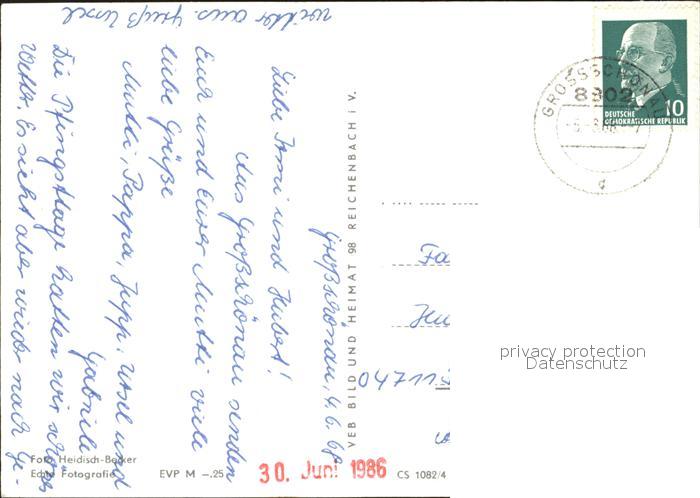 Großschönau, 4.6.68
Liebe Irmi und Hubert!
Aus Großschönau senden
Euch und Eurer Mutti viele
liebe Grüße
Mutti, Pappa, Jupp, Ursel und
Gabriele
Die Pfingsttage hatten wir schönes
Wetter. Es sieht aber wieder nach Ge-
witter aus. Gruß Ursel
VEB BILD UND HEIMAT 98 REICHENBACH i V.
GROSSSCHÖNAU
8802
10
DEUTSCHE
DEMOKRATISCHE REPUBLIK
Fa
04711
privacy protection
Datenschutz
Foto Heidisch-Becker
Echte Fotografie
EVP M –.25
30. Juni 1986
CS 1082/4